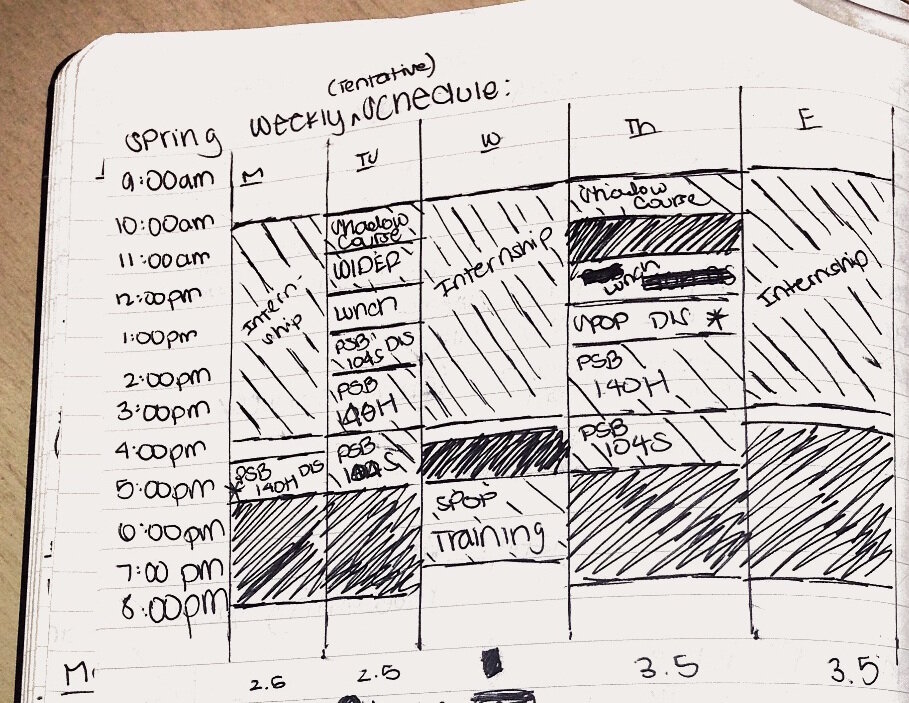 (Tentative)
Spring Weekly ^ Schedule:
M Tu W Th F
9:00am
10:00am
11:00am
12:00pm
1:00pm
2:00pm
3:00pm
4:00pm
5:00pm
6:00pm
7:00 pm
8:00pm
Intern-
ship
* PSB
140H DIS
Shadow
Course
WIDEP
Lunch
PSB
104S DIS
PSB
140H
PSB
104S
Internship
SPOP
Training
Shadow
Course
Lunch
SPOP DIS *
PSB
140H
PSB
104S
Internship
M 2.5 2.5 3.5 3.5